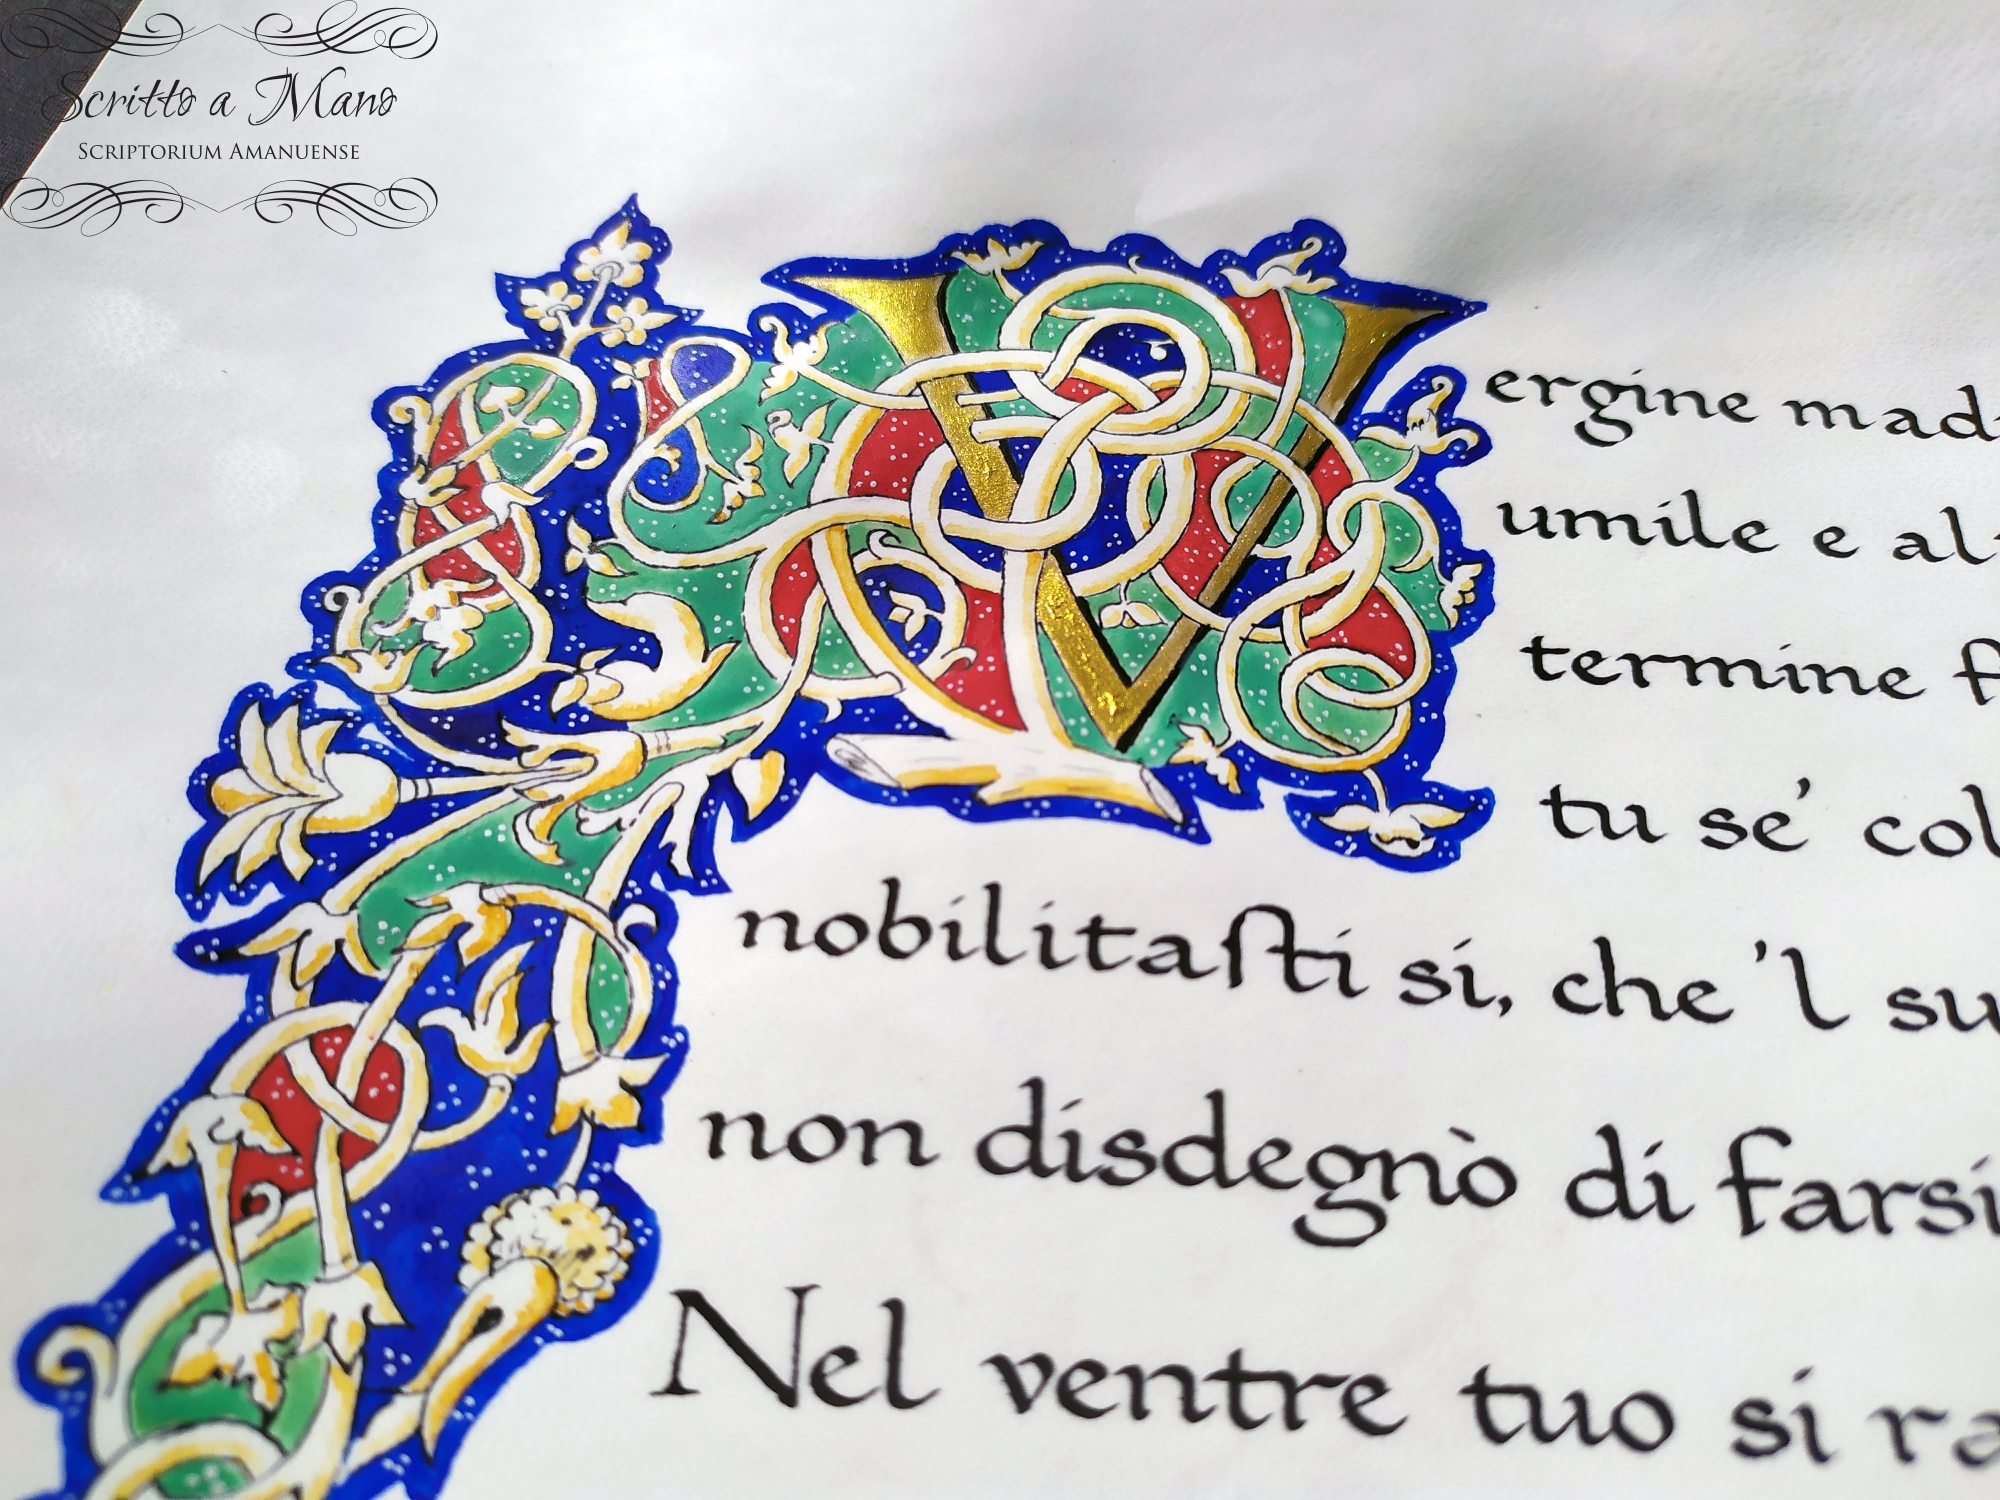 Scritto a Mano
SCRIPTORIUM AMANUENSE
Vergine mad
umile e al
termine f
tu se' col
nobilitasti si, che 'l su
non disdegnò di farsi
Nel ventre tuo si ra